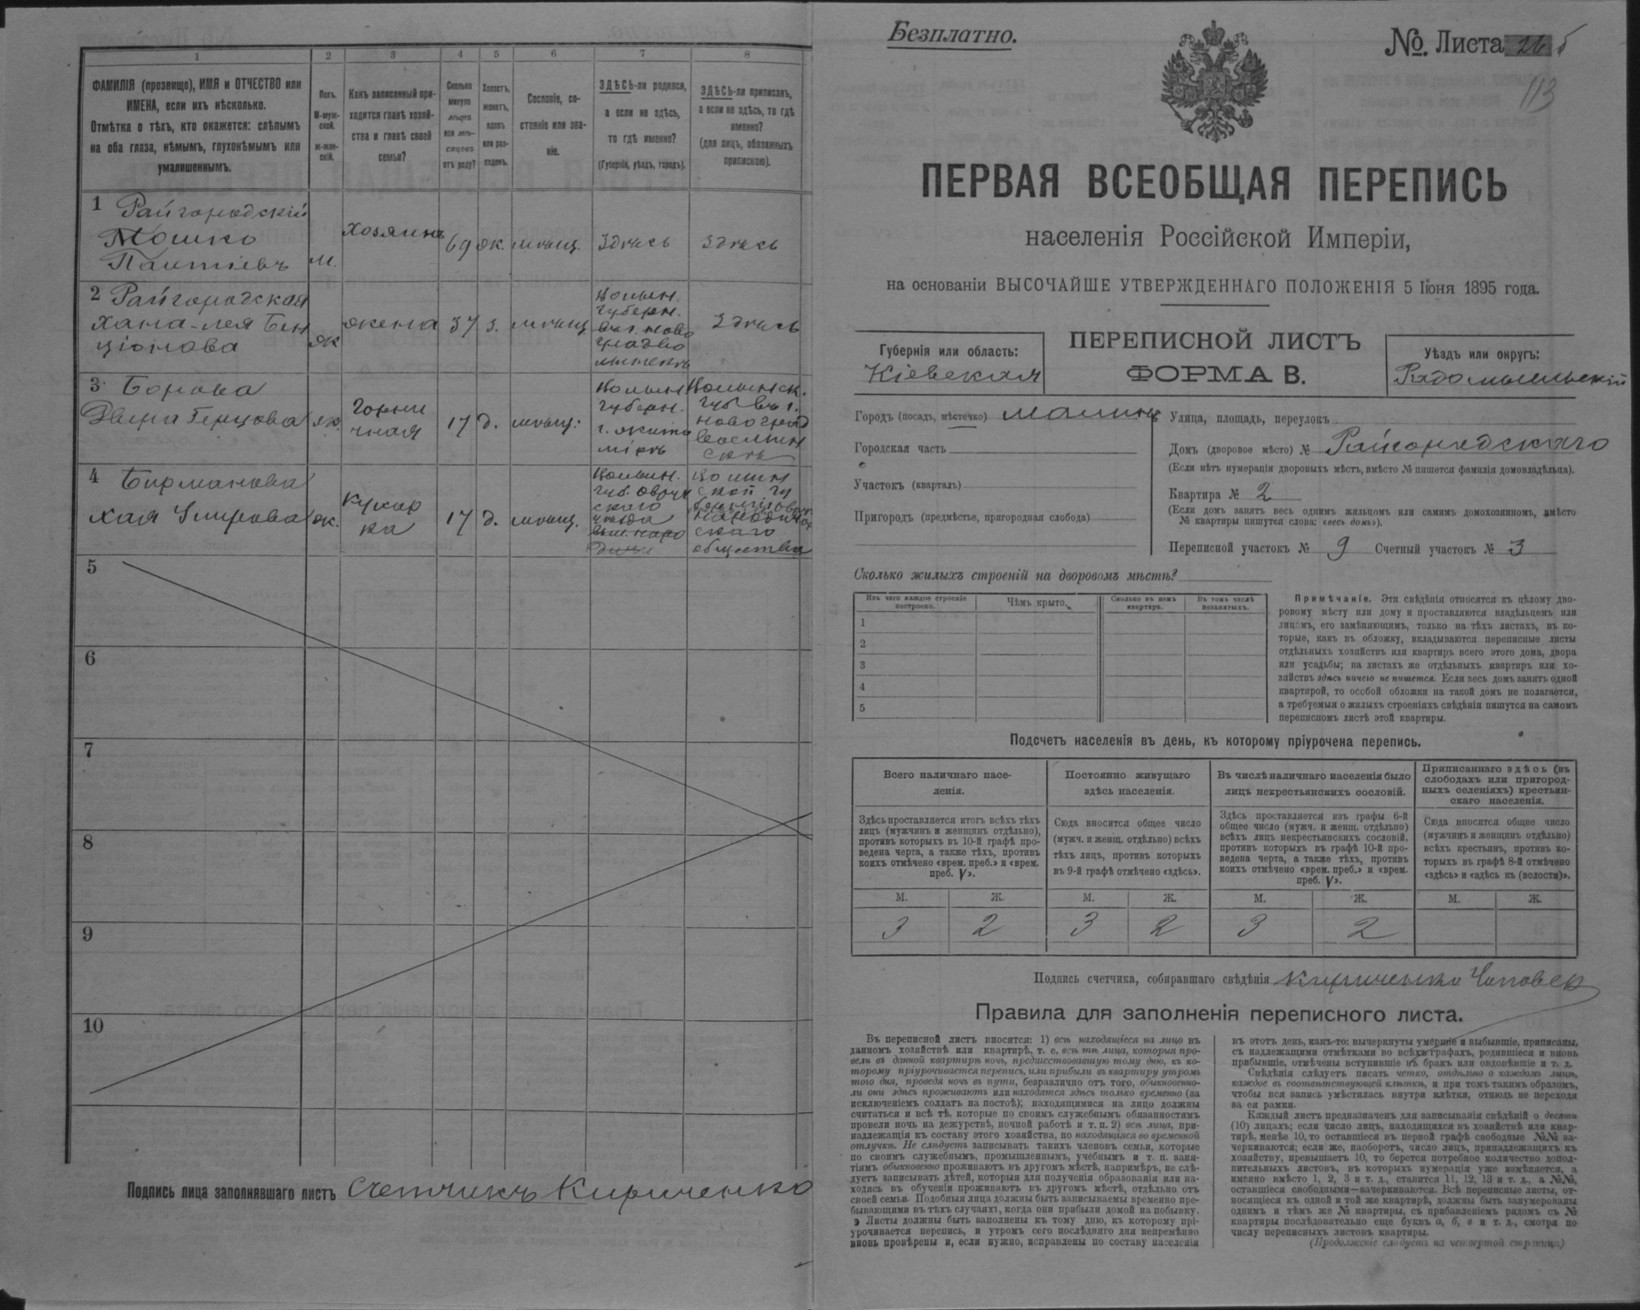 1
2
3
4
5
6
7
8
ФАМИЛІЯ (прозвище), ИМЯ и ОТЧЕСТВО или
ИМЕНА, если ихъ нѣсколько.
Отмѣтка о тѣхъ, кто окажется: слѣпымъ
на оба глаза, нѣмымъ, глухонѣмымъ или
умалишеннымъ.
Полъ.
М-муж-
ской.
ж-жен-
скій.
Какъ записанный при-
ходится главѣ хозяй-
ства и главѣ своей
семьи?
Сколько
минуло
лѣтъ
или мѣ-
сяцевъ
отъ роду?
Холостъ,
женатъ,
вдовъ
или раз-
веденъ.
Сословіе, со-
стояніе или зва-
ніе.
ЗДѢСЬ-ли родился,
а если не здѣсь,
то гдѣ именно?
(Губернія, уѣздъ, городъ).
ЗДѢСЬ-ли приписанъ,
а если не здѣсь, то гдѣ
именно?
(для лицъ, обязанныхъ
припискою).
1 Райгородскій
Мошко
м.
хозяинъ
69
ж.
мѣщ.
Здѣсь
Здѣсь
2 Райгородская
Хана-Лея Бен
ціонова
ж
жена
37
з.
мѣщ
Волын.
губерн.
Здѣсь
3
ж.
Горни
чная
17
д.
мѣщ.
Волын
губерн.
г. Жито
міръ
4
Бирманова
Хая
ж.
Кухар
ка
17
д.
мѣщ.
Волын.
губ. Овруч
скаго
уѣзда
общества
5
6
7
8
9
10
Подпись лица заполнявшаго листъ Счетчикъ Кириченко
Безплатно.
№. Листа 26 б
113
ПЕРВАЯ ВСЕОБЩАЯ ПЕРЕПИСЬ
населенія Россійской Имперіи,
на основаніи ВЫСОЧАЙШЕ УТВЕРЖДЕННАГО ПОЛОЖЕНІЯ 5 Іюня 1895 года.
Губернія или область:
Кіевская
ПЕРЕПИСНОЙ ЛИСТЪ
ФОРМА В.
Уѣздъ или округъ:
Радомысльскій
Городъ (посадъ, мѣстечко) Малинъ
Городская часть
Участокъ (кварталъ)
Пригородъ (предмѣстье, пригородная слобода)
Улица, площадь, переулокъ
Домъ (дворовое мѣсто) № Райгородскаго
(Если нѣтъ нумераціи дворовыхъ мѣстъ, вмѣсто № пишется фамилія домовладѣльца).
Квартира № 2
(Если домъ занятъ весь однимъ жильцомъ или самимъ домохозяиномъ, вмѣсто
№ квартиры пишутся слова: «весь домъ»).
Переписной участокъ № 9 Счетный участокъ № 3
Сколько жилыхъ строеній на дворовомъ мѣстѣ?
Изъ чего каждое строеніе
построено.
Чѣмъ крыто.
Сколько въ немъ
квартиръ.
Въ томъ числѣ
незанятыхъ.
1
2
3
4
5
Примѣчаніе. Эти свѣдѣнія относятся къ цѣлому дво-
ровому мѣсту или дому и проставляются владѣльцемъ или
лицомъ, его замѣняющимъ, только на тѣхъ листахъ, въ ко-
торые, какъ въ обложку, вкладываются переписные листы
отдѣльныхъ хозяйствъ или квартиръ всего этого дома, двора
или усадьбы; на листахъ же отдѣльныхъ квартиръ или хо-
зяйствъ здѣсь ничего не пишется. Если весь домъ занятъ одной
квартирой, то особой обложки на такой домъ не полагается,
а требуемыя о жилыхъ строеніяхъ свѣдѣнія пишутся на самомъ
переписномъ листѣ этой квартиры.
Подсчетъ населенія въ день, къ которому пріурочена перепись.
Всего наличнаго насе-
ленія.
Здѣсь проставляется итогъ всѣхъ тѣхъ
лицъ (мужчинъ и женщинъ отдѣльно),
противъ которыхъ въ 10-й графѣ про-
ведена черта, а также тѣхъ, противъ
коихъ отмѣчено «врем. преб.» и «врем.
преб. V».
Постоянно живущаго
здѣсь населенія.
Сюда вносится общее число
(мужч. и женщ. отдѣльно) всѣхъ
тѣхъ лицъ, противъ которыхъ
въ 9-й графѣ отмѣчено «здѣсь».
Въ числѣ наличнаго населенія было
лицъ некрестьянскихъ сословій.
Здѣсь проставляется изъ графы 6-й
общее число (мужч. и женщ. отдѣльно)
всѣхъ лицъ некрестьянскихъ сословій,
противъ которыхъ въ графѣ 10-й про-
ведена черта, а также тѣхъ, противъ
коихъ отмѣчено «врем. преб.» и «врем.
преб. V».
Приписаннаго здѣсь (въ
слободахъ или пригород-
ныхъ селеніяхъ) крестьян-
скаго населенія.
Сюда вносится общее число
(мужчинъ и женщинъ отдѣльно)
всѣхъ крестьянъ, противъ ко-
торыхъ въ графѣ 8-й отмѣчено
«здѣсь» и «здѣсь къ (волости)».
М. Ж. М. Ж. М. Ж. М. Ж.
3 2 3 2 3 2
Подпись счетчика, собиравшаго свѣдѣнія Кириченко
Правила для заполненія переписного листа.
Въ переписной листъ вносится: 1) всѣ находящіеся на лицо въ
данномъ хозяйствѣ или квартирѣ, т. е. всѣ тѣ лица, которыя про-
вели въ данной квартирѣ ночь, предшествовавшую тому дню, къ ко-
торому пріурочивается перепись, или прибыли въ квартиру утромъ
того дня, проведя ночь въ пути, безразлично отъ того, обыкновенно-
ли они здѣсь проживаютъ или находятся здѣсь только временно (за
исключеніемъ солдатъ на постоѣ); находящимися на лицо должны
считаться и всѣ тѣ, которые по своимъ служебнымъ обязанностямъ
провели ночь на дежурствѣ, ночной работѣ и т. п. 2) всѣ лица, при-
надлежащія къ составу этого хозяйства, но находящіяся во временной
отлучкѣ. Не слѣдуетъ записывать такихъ членовъ семьи, которые
по своимъ служебнымъ, промышленнымъ, учебнымъ и т. п. заня-
тіямъ обыкновенно проживаютъ въ другомъ мѣстѣ, напримѣръ, не слѣ-
дуетъ записывать дѣтей, которыя для полученія образованія или на-
ходясь въ обученіи проживаютъ въ другомъ мѣстѣ, отдѣльно отъ
своей семьи. Подобныя лица должны быть записываемы временно пре-
бывающими въ тѣхъ случаяхъ, когда они прибыли домой на побывку.
Листы должны быть заполнены къ тому дню, къ которому прі-
урочивается перепись, и утромъ сего послѣдняго дня непремѣнно
вновь провѣрены и, если нужно, исправлены по составу населенія
въ этотъ день, какъ-то: вычеркнуты умершіе и выбывшіе, приписаны,
съ надлежащими отмѣтками во всѣхъ графахъ, родившіеся и вновь
прибывшіе, отмѣчены вступившіе въ бракъ или овдовѣвшіе и т. д.
Свѣдѣнія слѣдуетъ писать четко, отдѣльно о каждомъ лицѣ,
каждое въ соотвѣтствующей клѣткѣ, и при томъ такимъ образомъ,
чтобы вся запись умѣстилась внутри клѣтки, отнюдь не переходя
за ея рамки.
Каждый листъ предназначенъ для записыванія свѣдѣній о десяти
(10) лицахъ; если число лицъ, находящихся въ хозяйствѣ или квар-
тирѣ, менѣе 10, то оставшіеся въ первой графѣ свободные №№ за-
черкиваются; если же, наоборотъ, число лицъ, принадлежащихъ къ
хозяйству, превышаетъ 10, то берется потребное количество допол-
нительныхъ листовъ, въ которыхъ нумерація уже измѣняется, а
именно вмѣсто 1, 2, 3 и т. д., ставится 11, 12, 13 и т. д., а №№,
оставшіеся свободными—зачеркиваются. Всѣ переписные листы, от-
носящіеся къ одной и той же квартирѣ, должны быть занумерованы
однимъ и тѣмъ же № квартиры, съ прибавленіемъ рядомъ съ №
квартиры послѣдовательно еще буквъ а, б, в и т. д., смотря по
числу переписныхъ листовъ квартиры.
(Продолженіе слѣдуетъ на четвертой страницѣ)